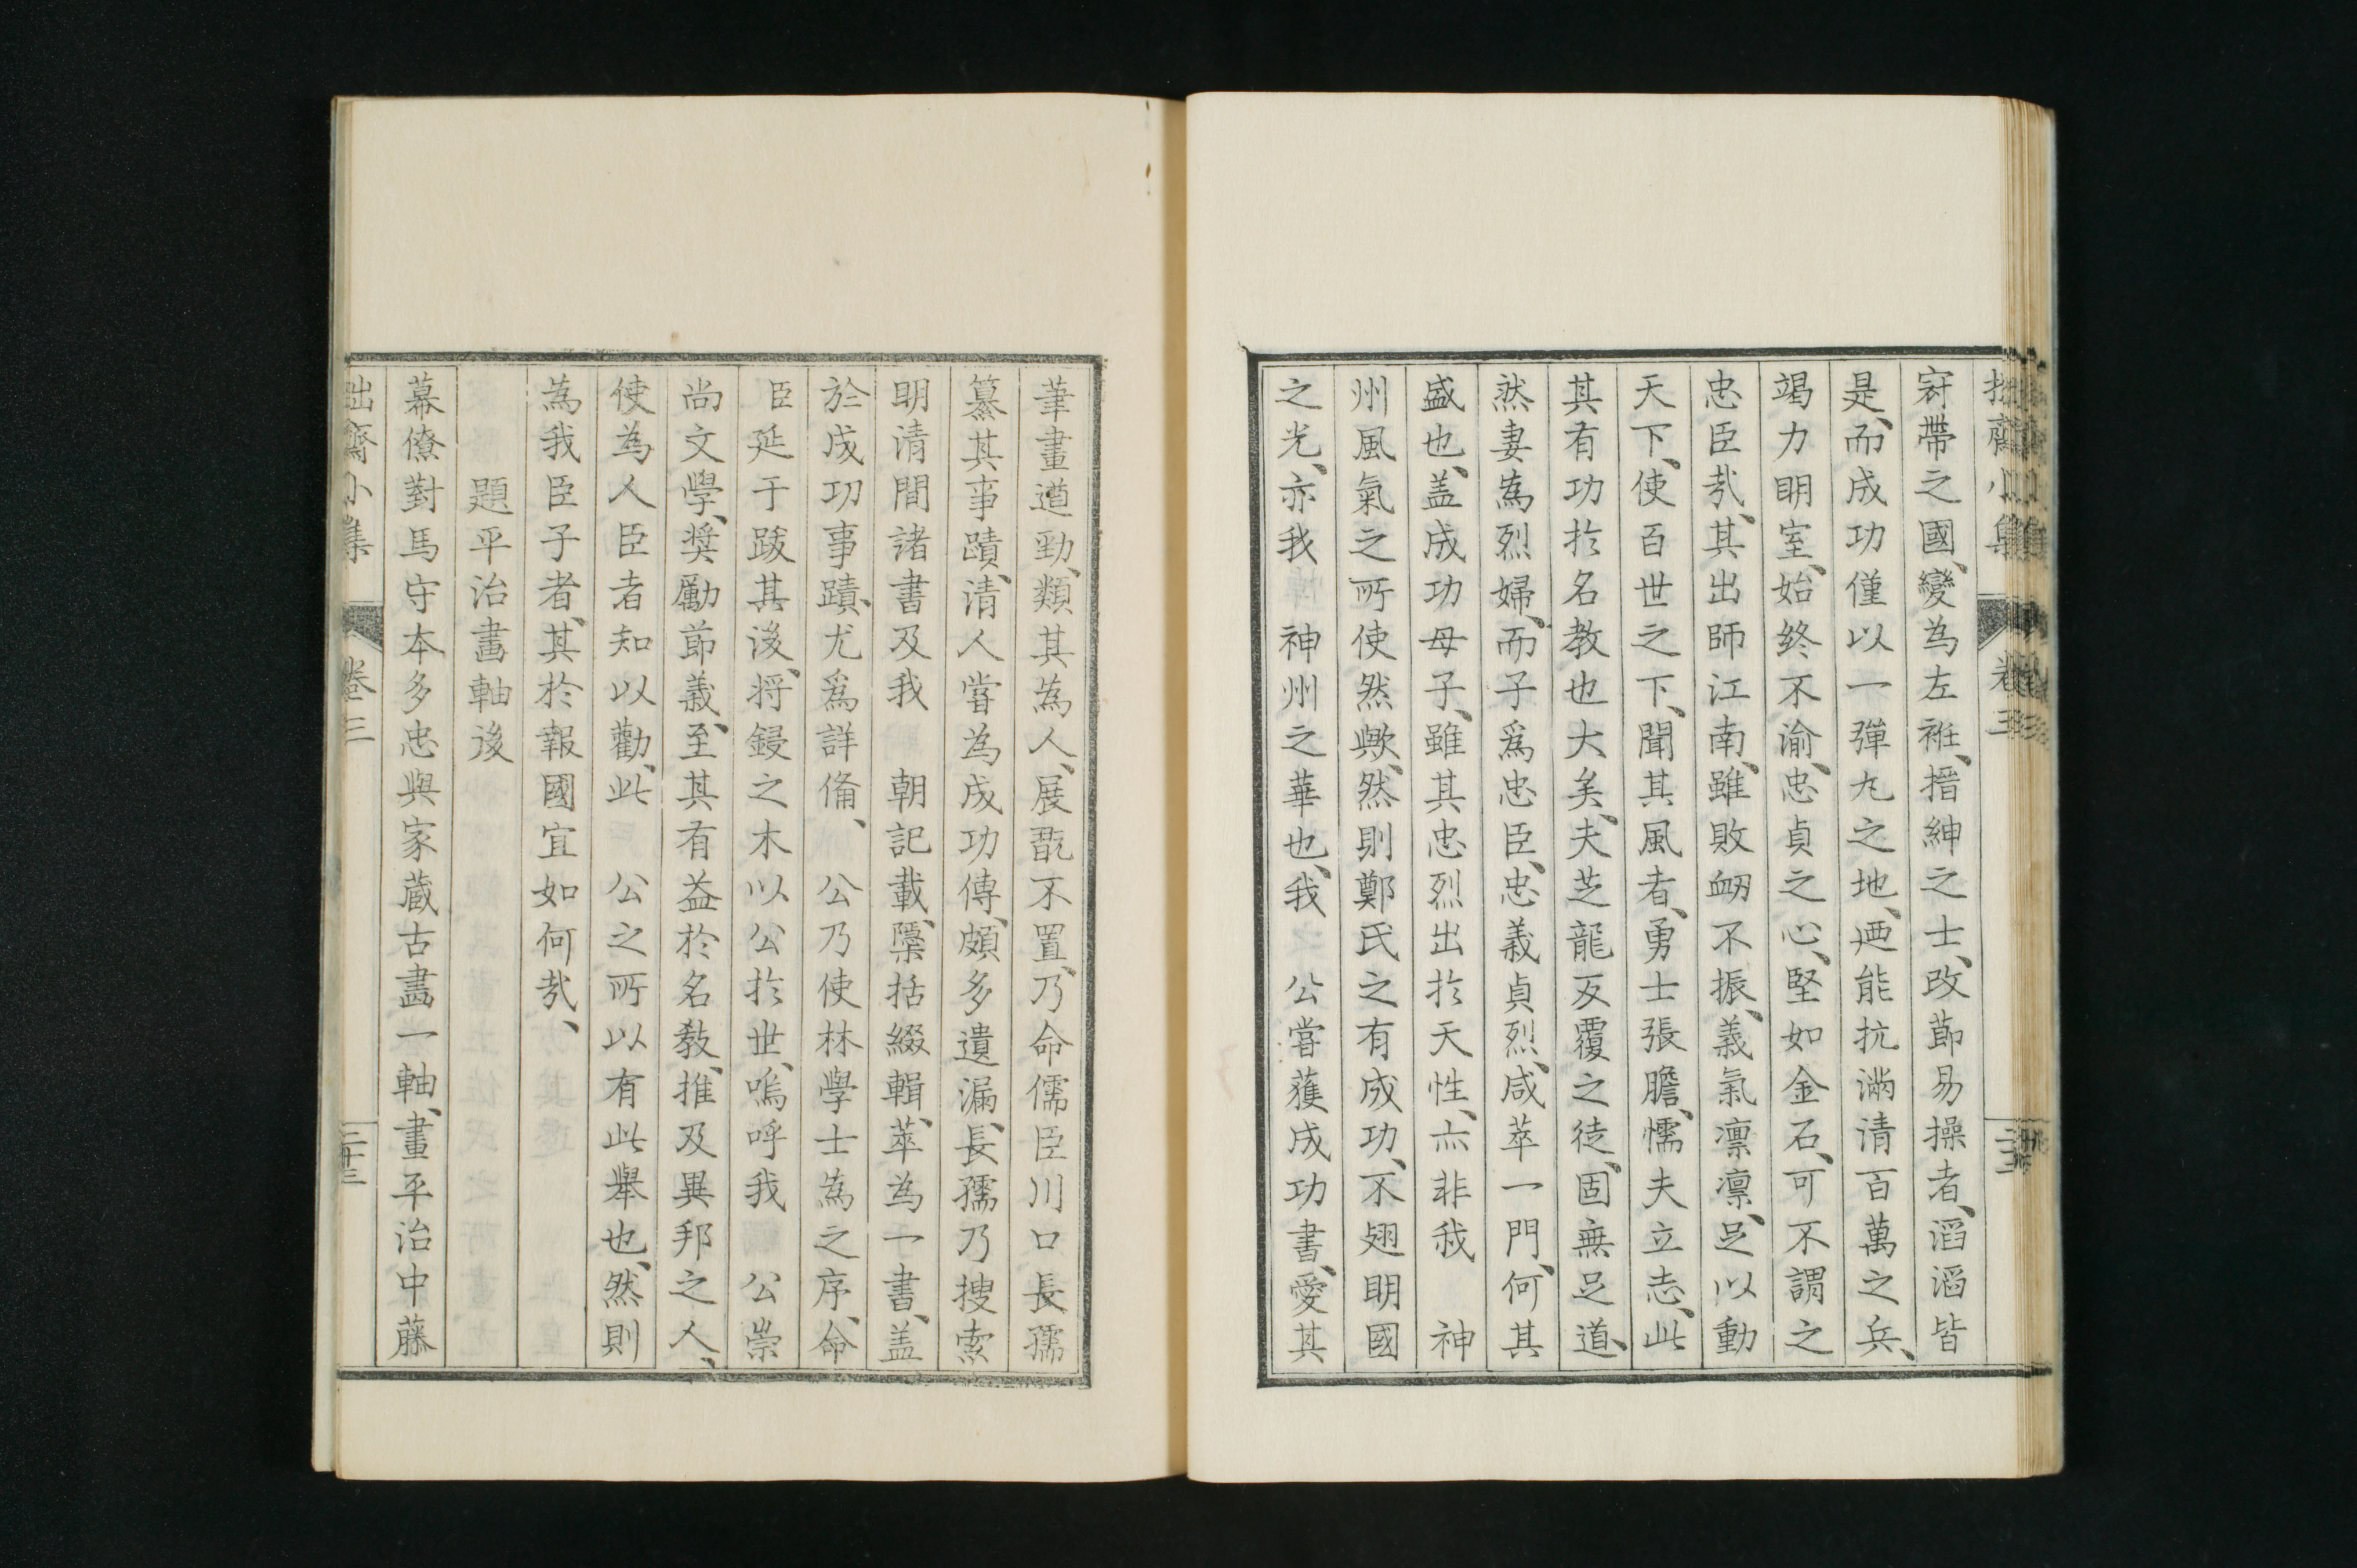 拙齋小集 卷三 二十二
冠帶之國、變為左袵、搢紳之士、改莭易操者、滔滔皆
是、而成功僅以一彈丸之地、迺能抗滿清百萬之兵、
竭力明室、始終不渝、忠貞之心、堅如金石、可不謂之
忠臣㢤、其出師江南、雖敗衂不振、義氣凛凛、足以動
天下、使百世之下、聞其風者、勇士張膽、懦夫立志、此
其有功於名教也大矣、夫芝龍反覆之徒、固無足道、
然妻為烈婦、而子爲忠臣、忠義貞烈、咸萃一門、何其
盛也、盖成功母子、雖其忠烈出於天性、亦非我　神
州風氣之所使然歟、然則鄭氏之有成功、不翅明國
之光、亦我　神州之華也、我　公嘗獲成功書、愛其
筆畫遒勁、類其為人、展翫不置、乃命儒臣川口長孺
纂其事蹟、清人嘗為成功傳、頗多遺漏、長孺乃搜索
明清間諸書及我　朝記載、櫽括綴輯、萃為一書、盖
於成功事蹟、尤爲詳偹、　公乃使林學士為之序、命
臣延于跋其後、将鋟之木以公於世、嗚呼我　公崇
尚文學、奨勵莭義、至其有益於名教、推及異邦之人、
使為人臣者知以勸、此　公之所以有此舉也、然則
為我臣子者、其於報國宜如何㢤、
題平治畫軸後
幕僚對馬守本多忠與家蔵古畵一軸、畫平治中藤
拙齋小集 卷三 二十三